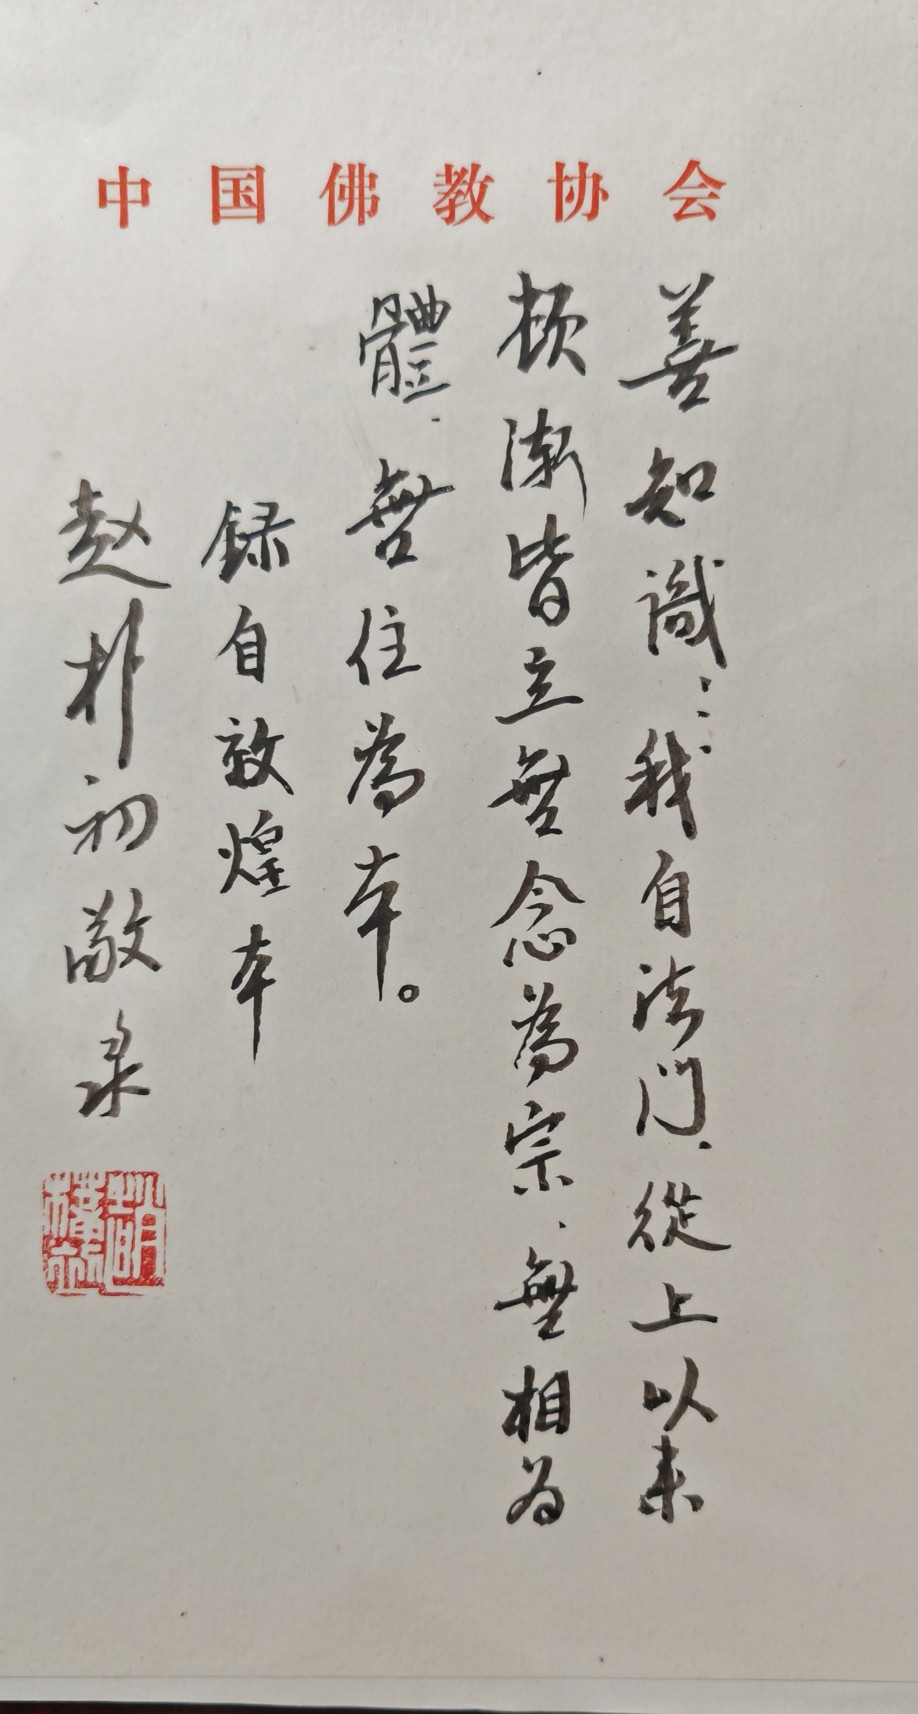 中国佛教协会
善知識：我自法门、從上以来
頓漸皆立無念為宗、無相为
體、無住為本。
録自敦煌本
赵朴初敬录
趙樸初